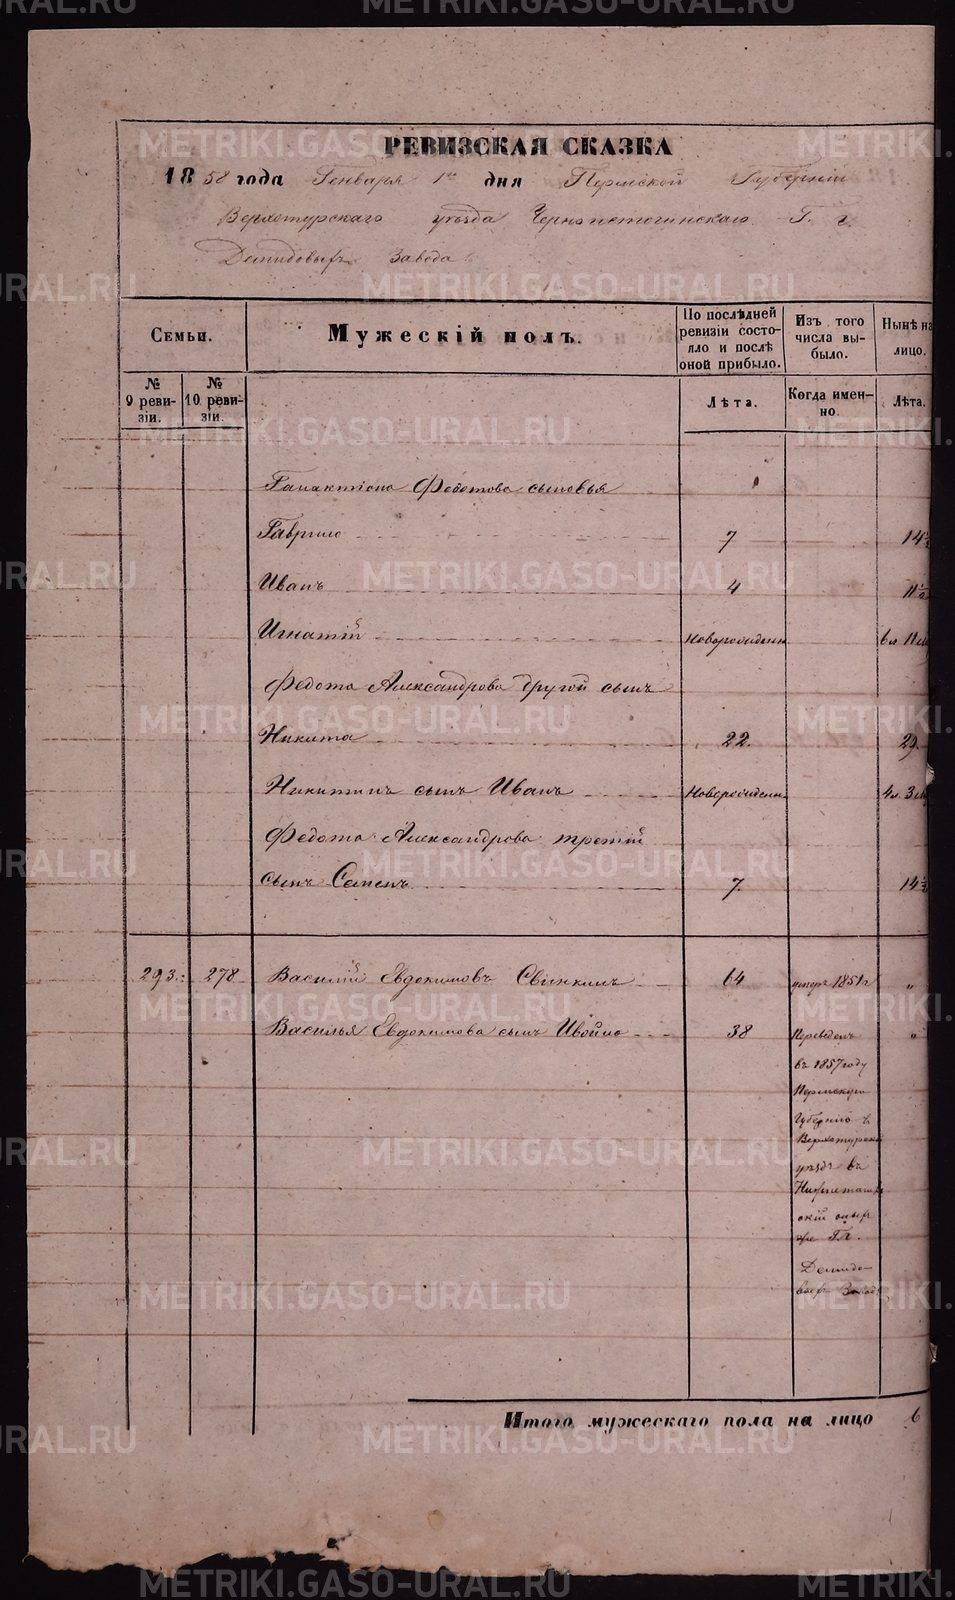 METRIKI.GASO-URAL.RU
РЕВИЗСКАЯ СКАЗКА
1858 года Генваря 1го дня Пермской Губернии
Верхотурскаго уезда Черноисточинскаго Г. г.
Демидовыхъ завода
Семьи.
№ 9 ревизіи.
№ 10 ревизіи.
Мужескій полъ.
По послѣдней ревизіи состояло и послѣ оной прибыло.
Изъ того числа выбыло.
Нынѣ на лицо.
Лѣта.
Когда именно.
Лѣта.
Галактіона Федотова сыновья
Гаврило 7 14½
Иванъ 4 11½
Игнатій Новорожденн 6л 11м
Федота Александрова другой сынъ
Никита 22. 29.
Никитинъ сынъ Иванъ Новорожденн 4л. 3м
Федота Александрова третій
сынъ Семенъ 7. 14½
293. 278 Василій Евдокимовъ Свинкинъ 64 умеръ 1851г „
Василья Евдокимова сынъ Ивойло 38 Переведенъ „
въ 1857 году
Пермскую
Губернію в
Верхотурск
уездъ въ
Нижнетагил
скій оныхъ
же Г.г.
Демидо-
выхъ Завод
Итого мужескаго пола на лицо 6